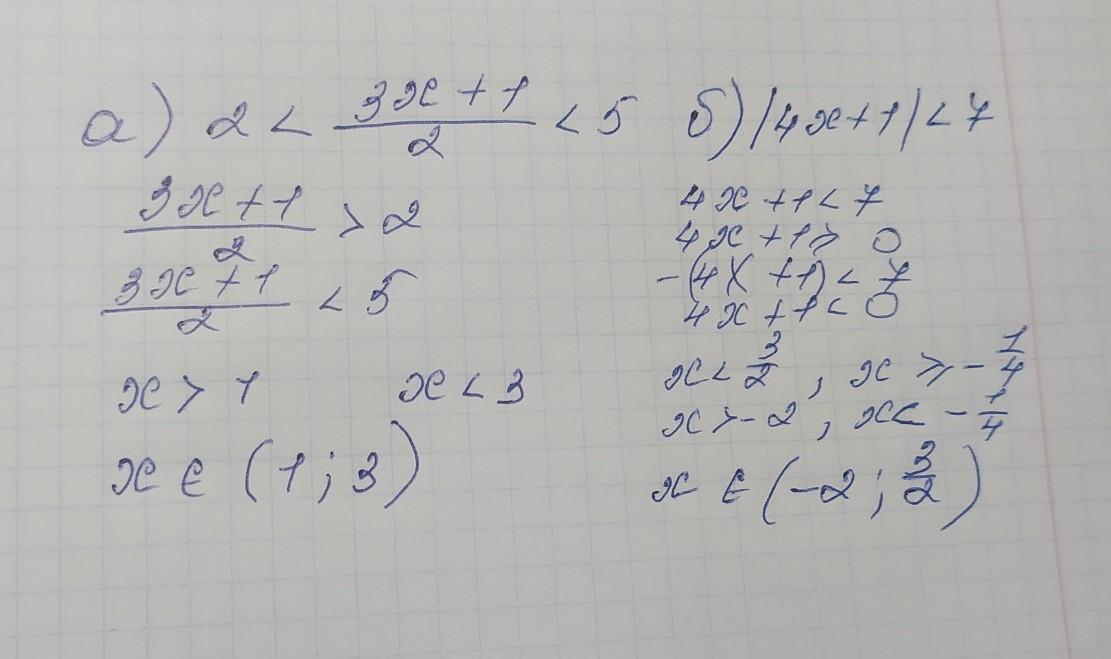 а) 2 < (3x + 1)/2 < 5
(3x + 1)/2 > 2
(3x + 1)/2 < 5
x > 1    x < 3
x ∈ (1 ; 3)
б) |4x + 1| < 7
4x + 1 < 7
4x + 1 ≥ 0
-(4x + 1) < 7
4x + 1 < 0
x < 3/2 , x ≥ -1/4
x > -2 , x < -1/4
x ∈ (-2 ; 3/2)